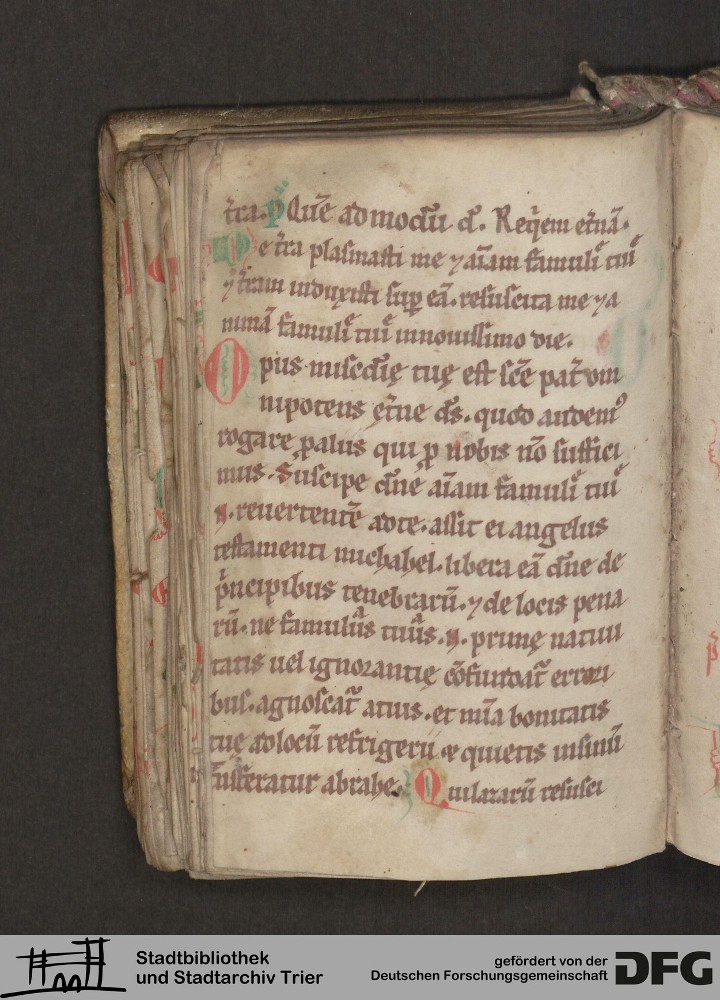 t̄ra. p̄ Quē ad modū d̄. Req̄em et̄nā.
De t̄ra plasmasti me ⁊ aīam famuli tui
⁊ t̄ram induxisti sup eā. resuscita me ⁊ a
nimā famuli tui innouissimo die.
Opus misc̄die tuę est sc̄e pat̄ om
nipotens et̄ne ds̄. quod audem᷒
rogare p alus qui p nobis nō suffici
mus. Suscipe dn̄e aīam famuli tui
N. reuertentē adte. assit ei angelus
testamenti michahel. libera eā dn̄e de
p̄ncipibus tenebrarū. ⁊ de locis pena
rū. ne famulus tuus. N. prime natiui
tatis uel ignorantię cōfundat̄ errori
bus. agnoscat̄ atuis. et mīa bonitatis
tue adlocū refrigerii ⁊ quietis insinū
t̄nsferatur abrahe. Qui lazarū resusci
Stadtbibliothek
und Stadtarchiv Trier
gefördert von der
Deutschen Forschungsgemeinschaft
DFG